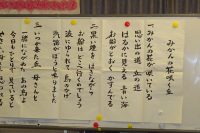 みかんの花咲く丘
一 みかんの花が咲いている
思い出の道 丘の道
はるかに見える 青い海
お船がとおく かすんでる
二 黒い煙を はきながら
お船はどこへ行くのでしょう
波にゆられて 島のかげ
汽笛がぼうと鳴りました
三 いつか来た丘 母さんと
一緒にながめた あの島よ